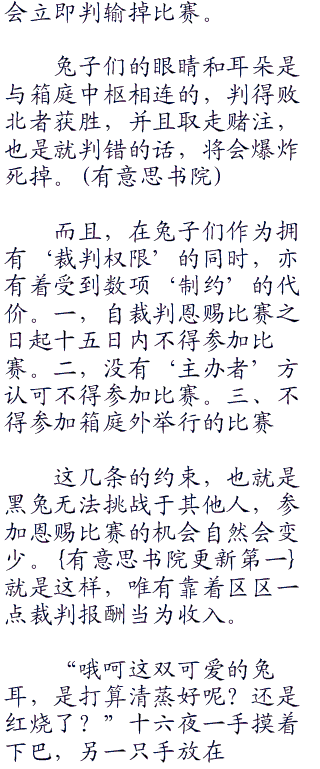 会立即判输掉比赛。
兔子们的眼睛和耳朵是
与箱庭中枢相连的，判得败
北者获胜，并且取走赌注，
也是就判错的话，将会爆炸
死掉。(有意思书院)
而且，在兔子们作为拥
有‘裁判权限’的同时，亦
有着受到数项‘制约’的代
价。一，自裁判恩赐比赛之
日起十五日内不得参加比
赛。二，没有‘主办者’方
认可不得参加比赛。三、不
得参加箱庭外举行的比赛
这几条的约束，也就是
黑兔无法挑战于其他人，参
加恩赐比赛的机会自然会变
少。{有意思书院更新第一}
就是这样，唯有靠着区区一
点裁判报酬当为收入。
“哦呵这双可爱的兔
耳，是打算清蒸好呢？还是
红烧了？”十六夜一手摸着
下巴，另一只手放在